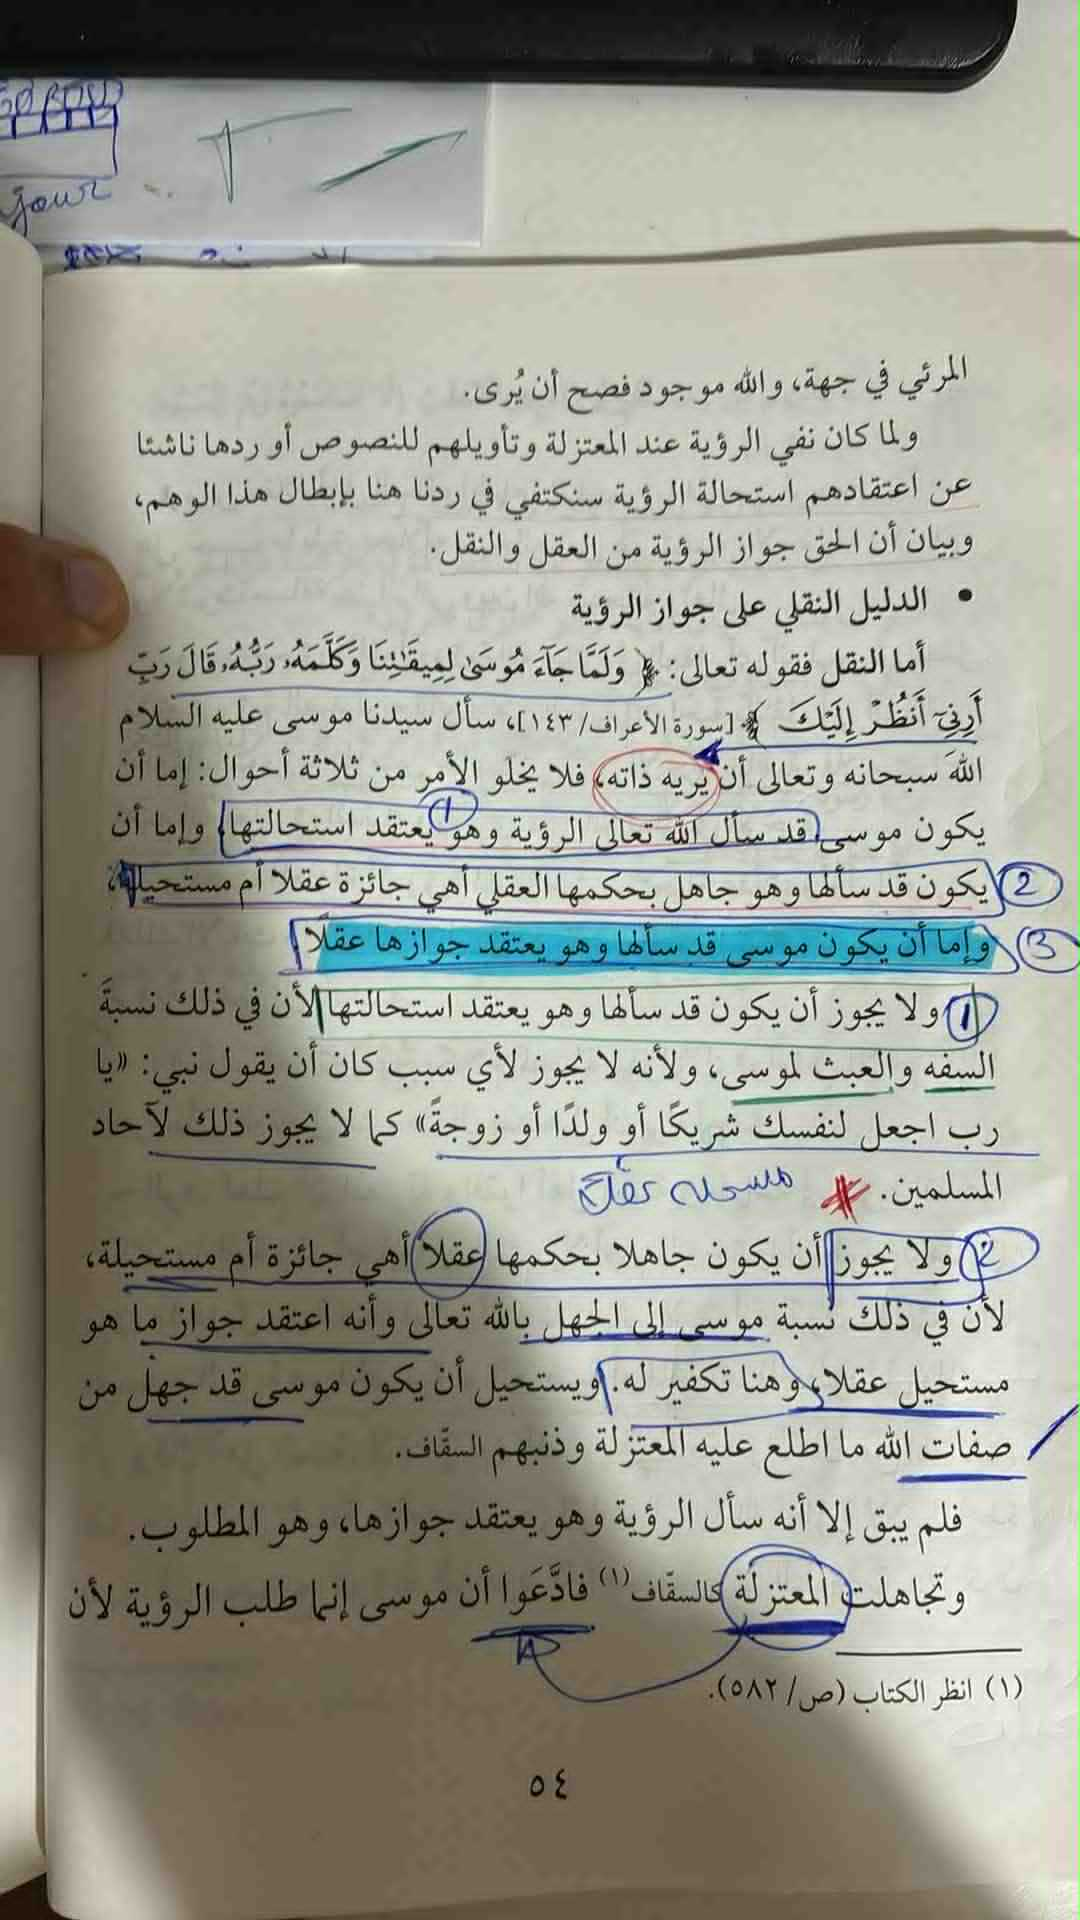 jour
المرئي في جهة، والله موجود فصح أن يُرى.
ولما كان نفي الرؤية عند المعتزلة وتأويلهم للنصوص أو ردها ناشئا
عن اعتقادهم استحالة الرؤية سنكتفي في ردنا هنا بإبطال هذا الوهم،
وبيان أن الحق جواز الرؤية من العقل والنقل.
• الدليل النقلي على جواز الرؤية
أما النقل فقوله تعالى: ﴿ وَلَمَّا جَآءَ مُوسَىٰ لِمِيقَٰتِنَا وَكَلَّمَهُۥ رَبُّهُۥ قَالَ رَبِّ
أَرِنِيٓ أَنظُرْ إِلَيْكَ ﴾ [سورة الأعراف/ ١٤٣]، سأل سيدنا موسى عليه السلام
اللهَ سبحانه وتعالى أن يريه ذاته، فلا يخلو الأمر من ثلاثة أحوال: إما أن
يكون موسى قد سأل الله تعالى الرؤية وهو يعتقد استحالتها، وإما أن
1
يكون قد سألها وهو جاهل بحكمها العقلي أهي جائزة عقلا أم مستحيلة،
2
وإما أن يكون موسى قد سألها وهو يعتقد جوازها عقلًا.
3
1 ولا يجوز أن يكون قد سألها وهو يعتقد استحالتها لأن في ذلك نسبةَ
السفه والعبث لموسى، ولأنه لا يجوز لأي سبب كان أن يقول نبي: «يا
رب اجعل لنفسك شريكًا أو ولدًا أو زوجةً» كما لا يجوز ذلك لآحاد
المسلمين.
2 ولا يجوز أن يكون جاهلا بحكمها عقلا أهي جائزة أم مستحيلة،
لأن في ذلك نسبة موسى إلى الجهل بالله تعالى وأنه اعتقد جواز ما هو
مستحيل عقلا، وهنا تكفير له. ويستحيل أن يكون موسى قد جهل من
صفات الله ما اطلع عليه المعتزلة وذنبهم السقّاف.
فلم يبق إلا أنه سأل الرؤية وهو يعتقد جوازها، وهو المطلوب.
وتجاهلت المعتزلة كالسقّاف(١) فادَّعَوا أن موسى إنما طلب الرؤية لأن
(١) انظر الكتاب (ص/ ٥٨٢).
٥٤